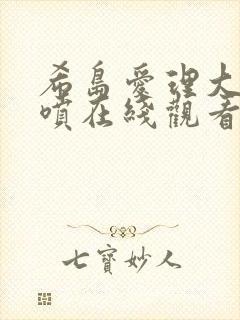 希島愛理大
噴在綫觀看
七寶妙人